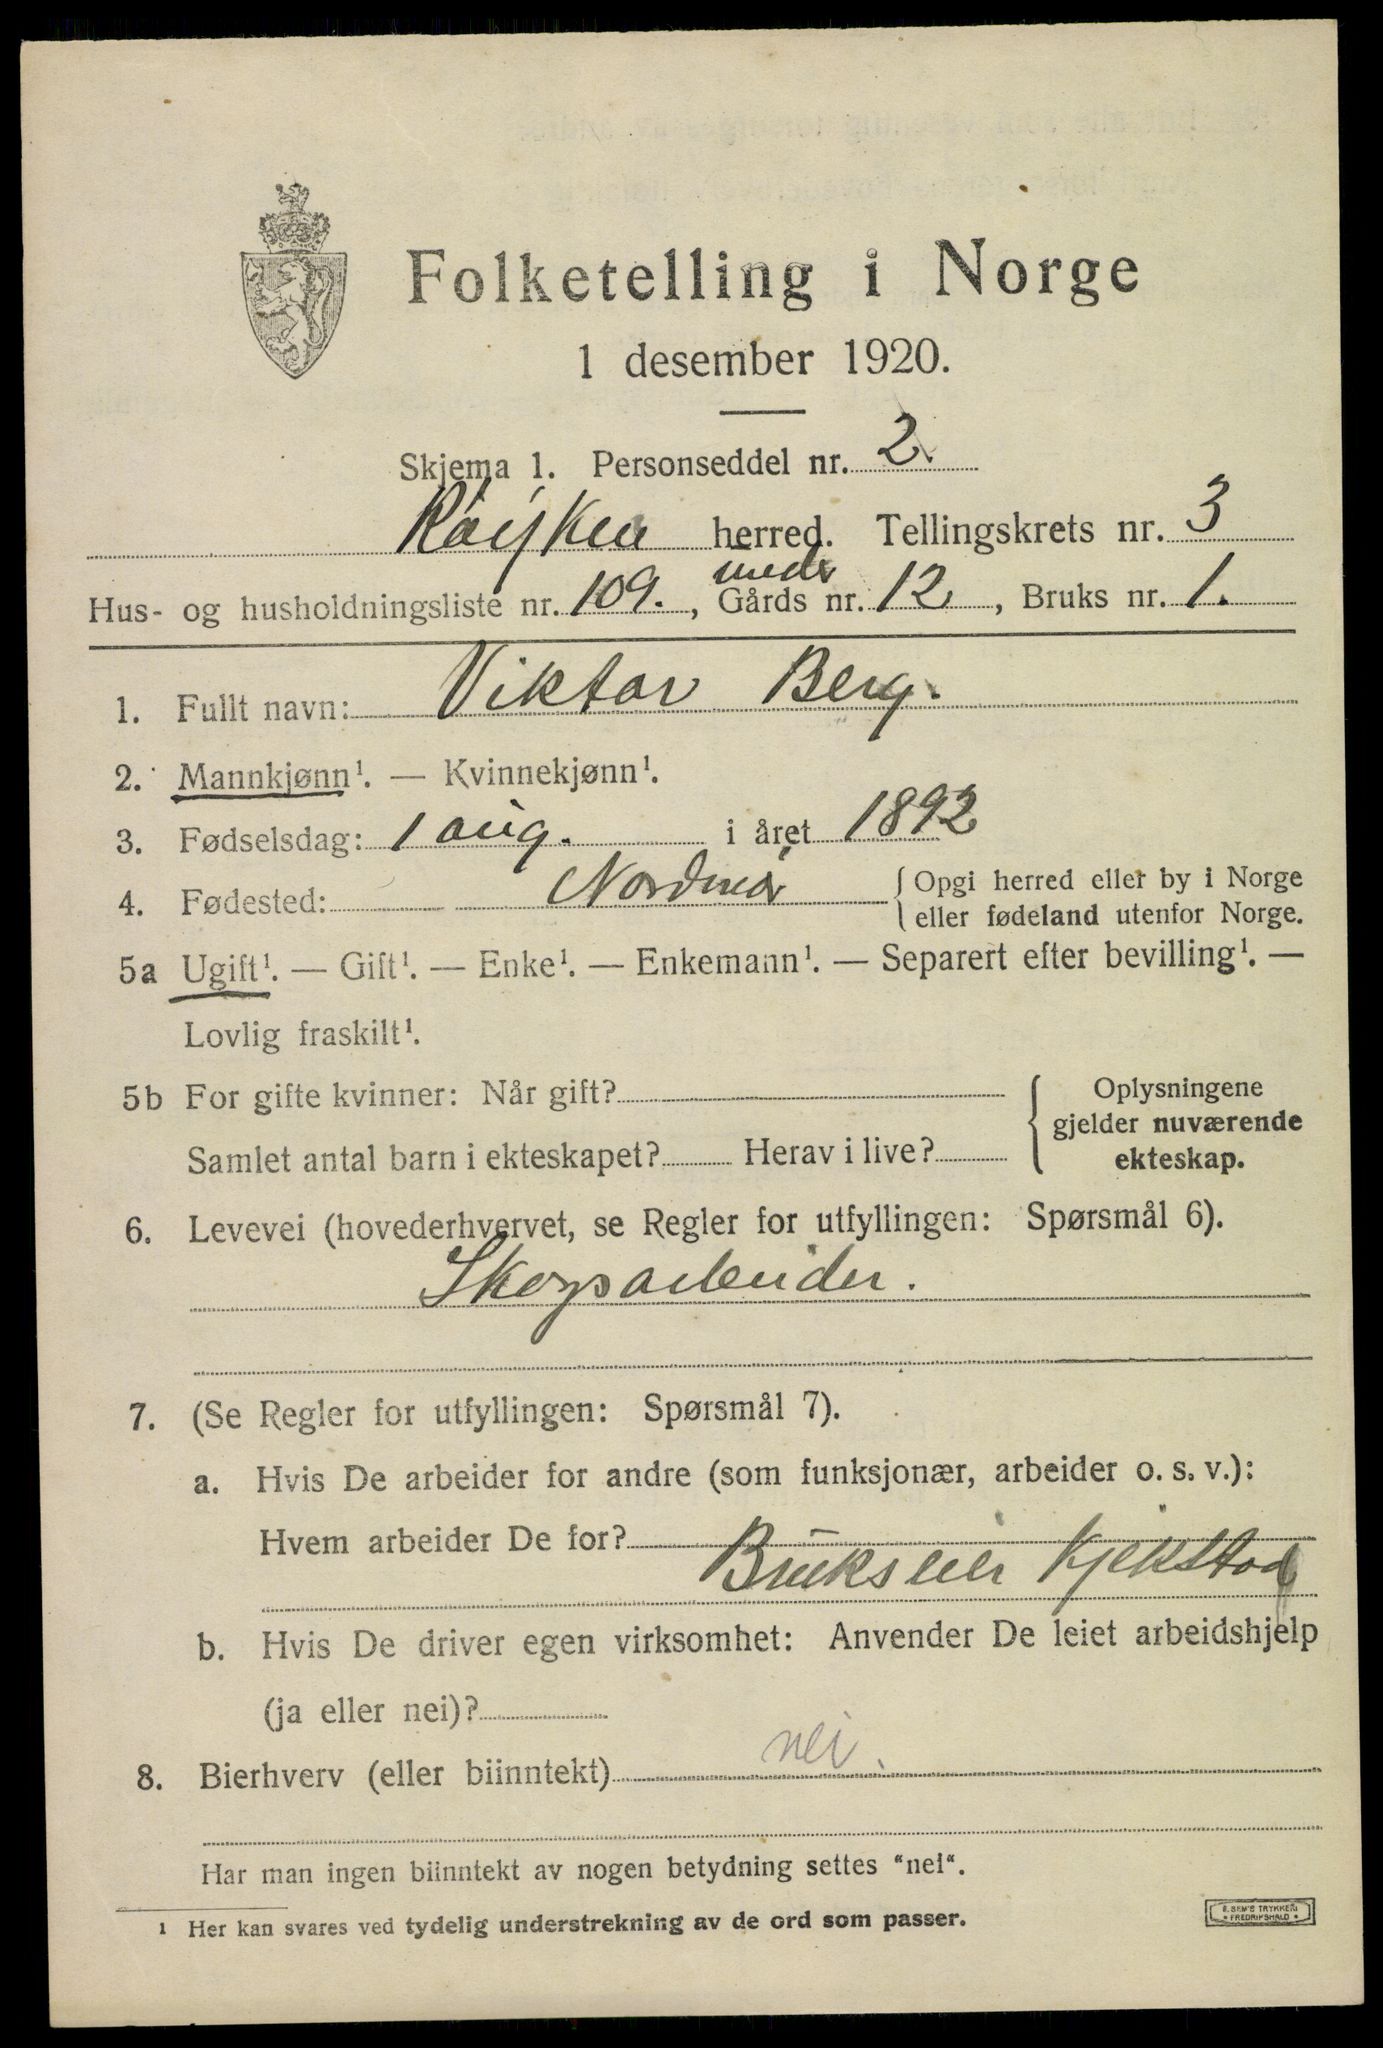 Folketelling i Norge
1 desember 1920.
Skjema 1. Personseddel nr. 2.
Røyken herred. Tellingskrets nr. 3
under
Hus- og husholdningsliste nr. 109. , Gårds nr. 12 , Bruks nr. 1.
1. Fullt navn: Viktor Berg.
2. Mannkjønn¹. — Kvinnekjønn¹.
3. Fødselsdag: 1 aug. i året 1892
4. Fødested: Nordmør { Opgi herred eller by i Norge
eller fødeland utenfor Norge.
5a Ugift¹. — Gift¹. — Enke¹. — Enkemann¹. — Separert efter bevilling¹. —
Lovlig fraskilt¹.
5b For gifte kvinner: Når gift? { Oplysningene
gjelder nuværende
Samlet antal barn i ekteskapet? Herav i live? ekteskap.
6. Levevei (hovederhvervet, se Regler for utfyllingen: Spørsmål 6).
Skogsarbeider.
7. (Se Regler for utfyllingen: Spørsmål 7).
a. Hvis De arbeider for andre (som funksjonær, arbeider o. s. v.):
Hvem arbeider De for?
Brukseier Kjekstad
b. Hvis De driver egen virksomhet: Anvender De leiet arbeidshjelp
(ja eller nei)?
8. Bierhverv (eller biinntekt) nei.
Har man ingen biinntekt av nogen betydning settes "nei".
¹ Her kan svares ved tydelig understrekning av de ord som passer.
E. SEM'S TRYKKERI
* FREDRIKSHALD *